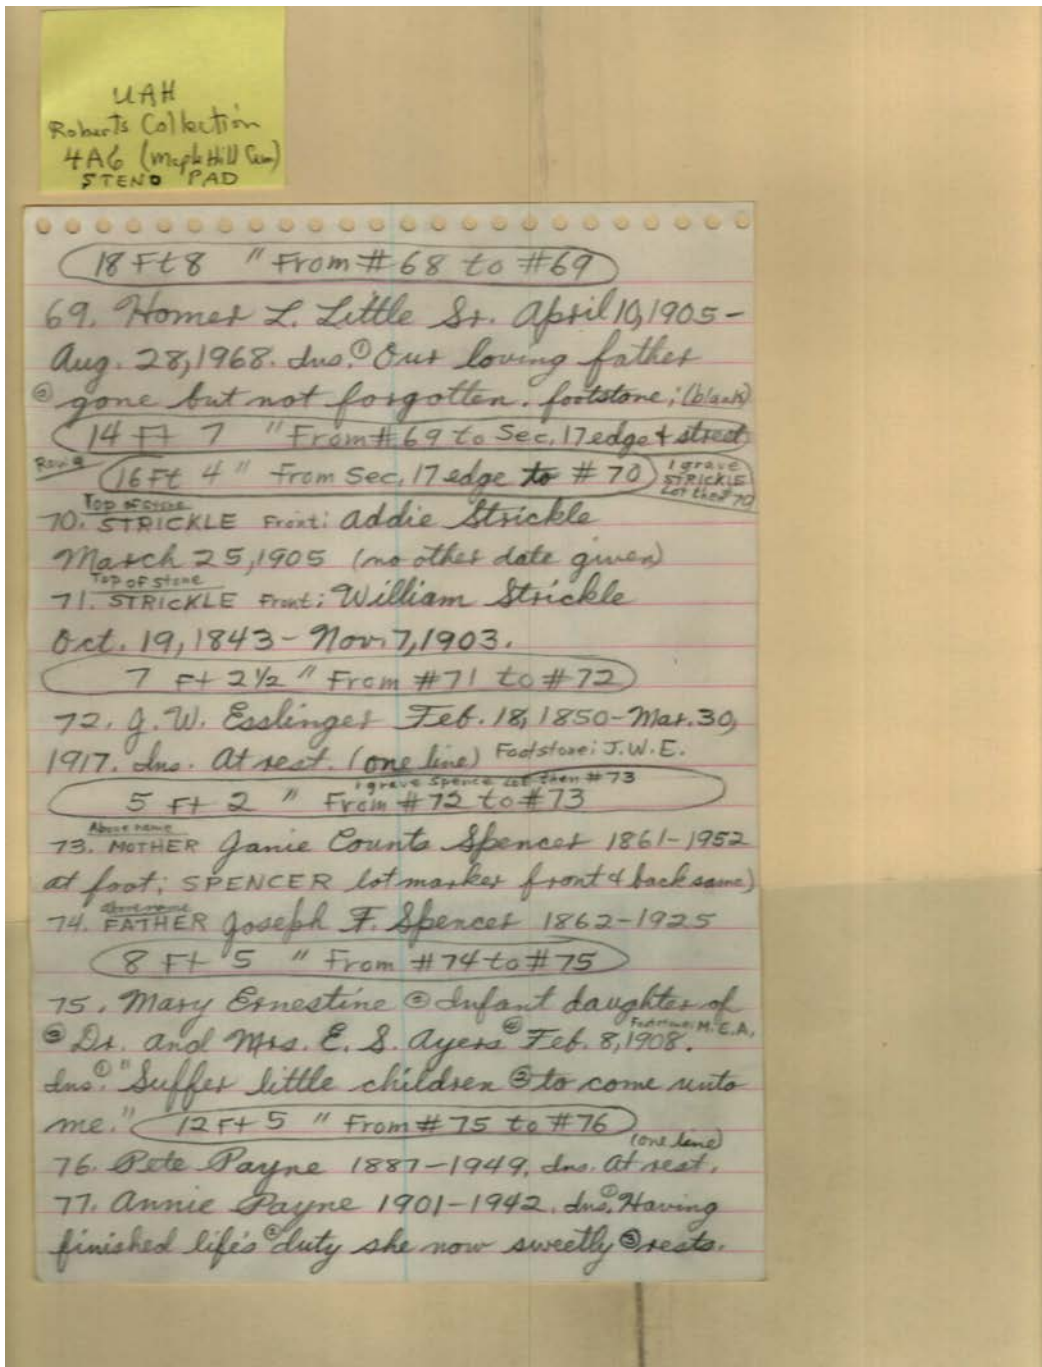 UAH
Roberts Collection
4A6 (Maple Hill Cem)
STENO PAD
18 Ft 8 " From #68 to #69
69. Homer L. Little Sr. April 10, 1905-
Aug. 28, 1968. Ins. ① Our loving father
② gone but not forgotten. footstone; (blank)
14 Ft 7 " From #69 to Sec, 17 edge & street
Row 9
16 Ft 4 " From Sec, 17 edge to #70
1 grave
STRICKLE
Lot then #70
Top of stone
70. STRICKLE Front: Addie Strickle
March 25, 1905 (no other date given)
Top of stone
71. STRICKLE Front: William Strickle
Oct. 19, 1843 - Nov. 7, 1903.
7 Ft 2½ " From #71 to #72
72. J. W. Esslinger Feb. 18, 1850 - Mar. 30,
1917. Ins. At rest. (one line) Footstone: J.W.E.
1 grave Spence Lot then #73
5 Ft 2 " From #72 to #73
Above name
73. MOTHER Janie Counts Spencer 1861-1952
at foot; SPENCER lot marker front & back same)
Above name
74. FATHER Joseph F. Spencer 1862-1925
8 Ft 5 " From #74 to #75
75. Mary Ernestine ② Infant daughter of
③ Dr. and Mrs. E. S. Ayers ④ Feb. 8, 1908. Footstone: M.E.A.
Ins. ① "Suffer little children ② to come unto
me." 12 Ft 5 " From #75 to #76
(one line)
76. Pete Payne 1887-1949. Ins. At rest.
77. Annie Payne 1901-1942. Ins. ① Having
finished life's ② duty she now sweetly ③ rests.